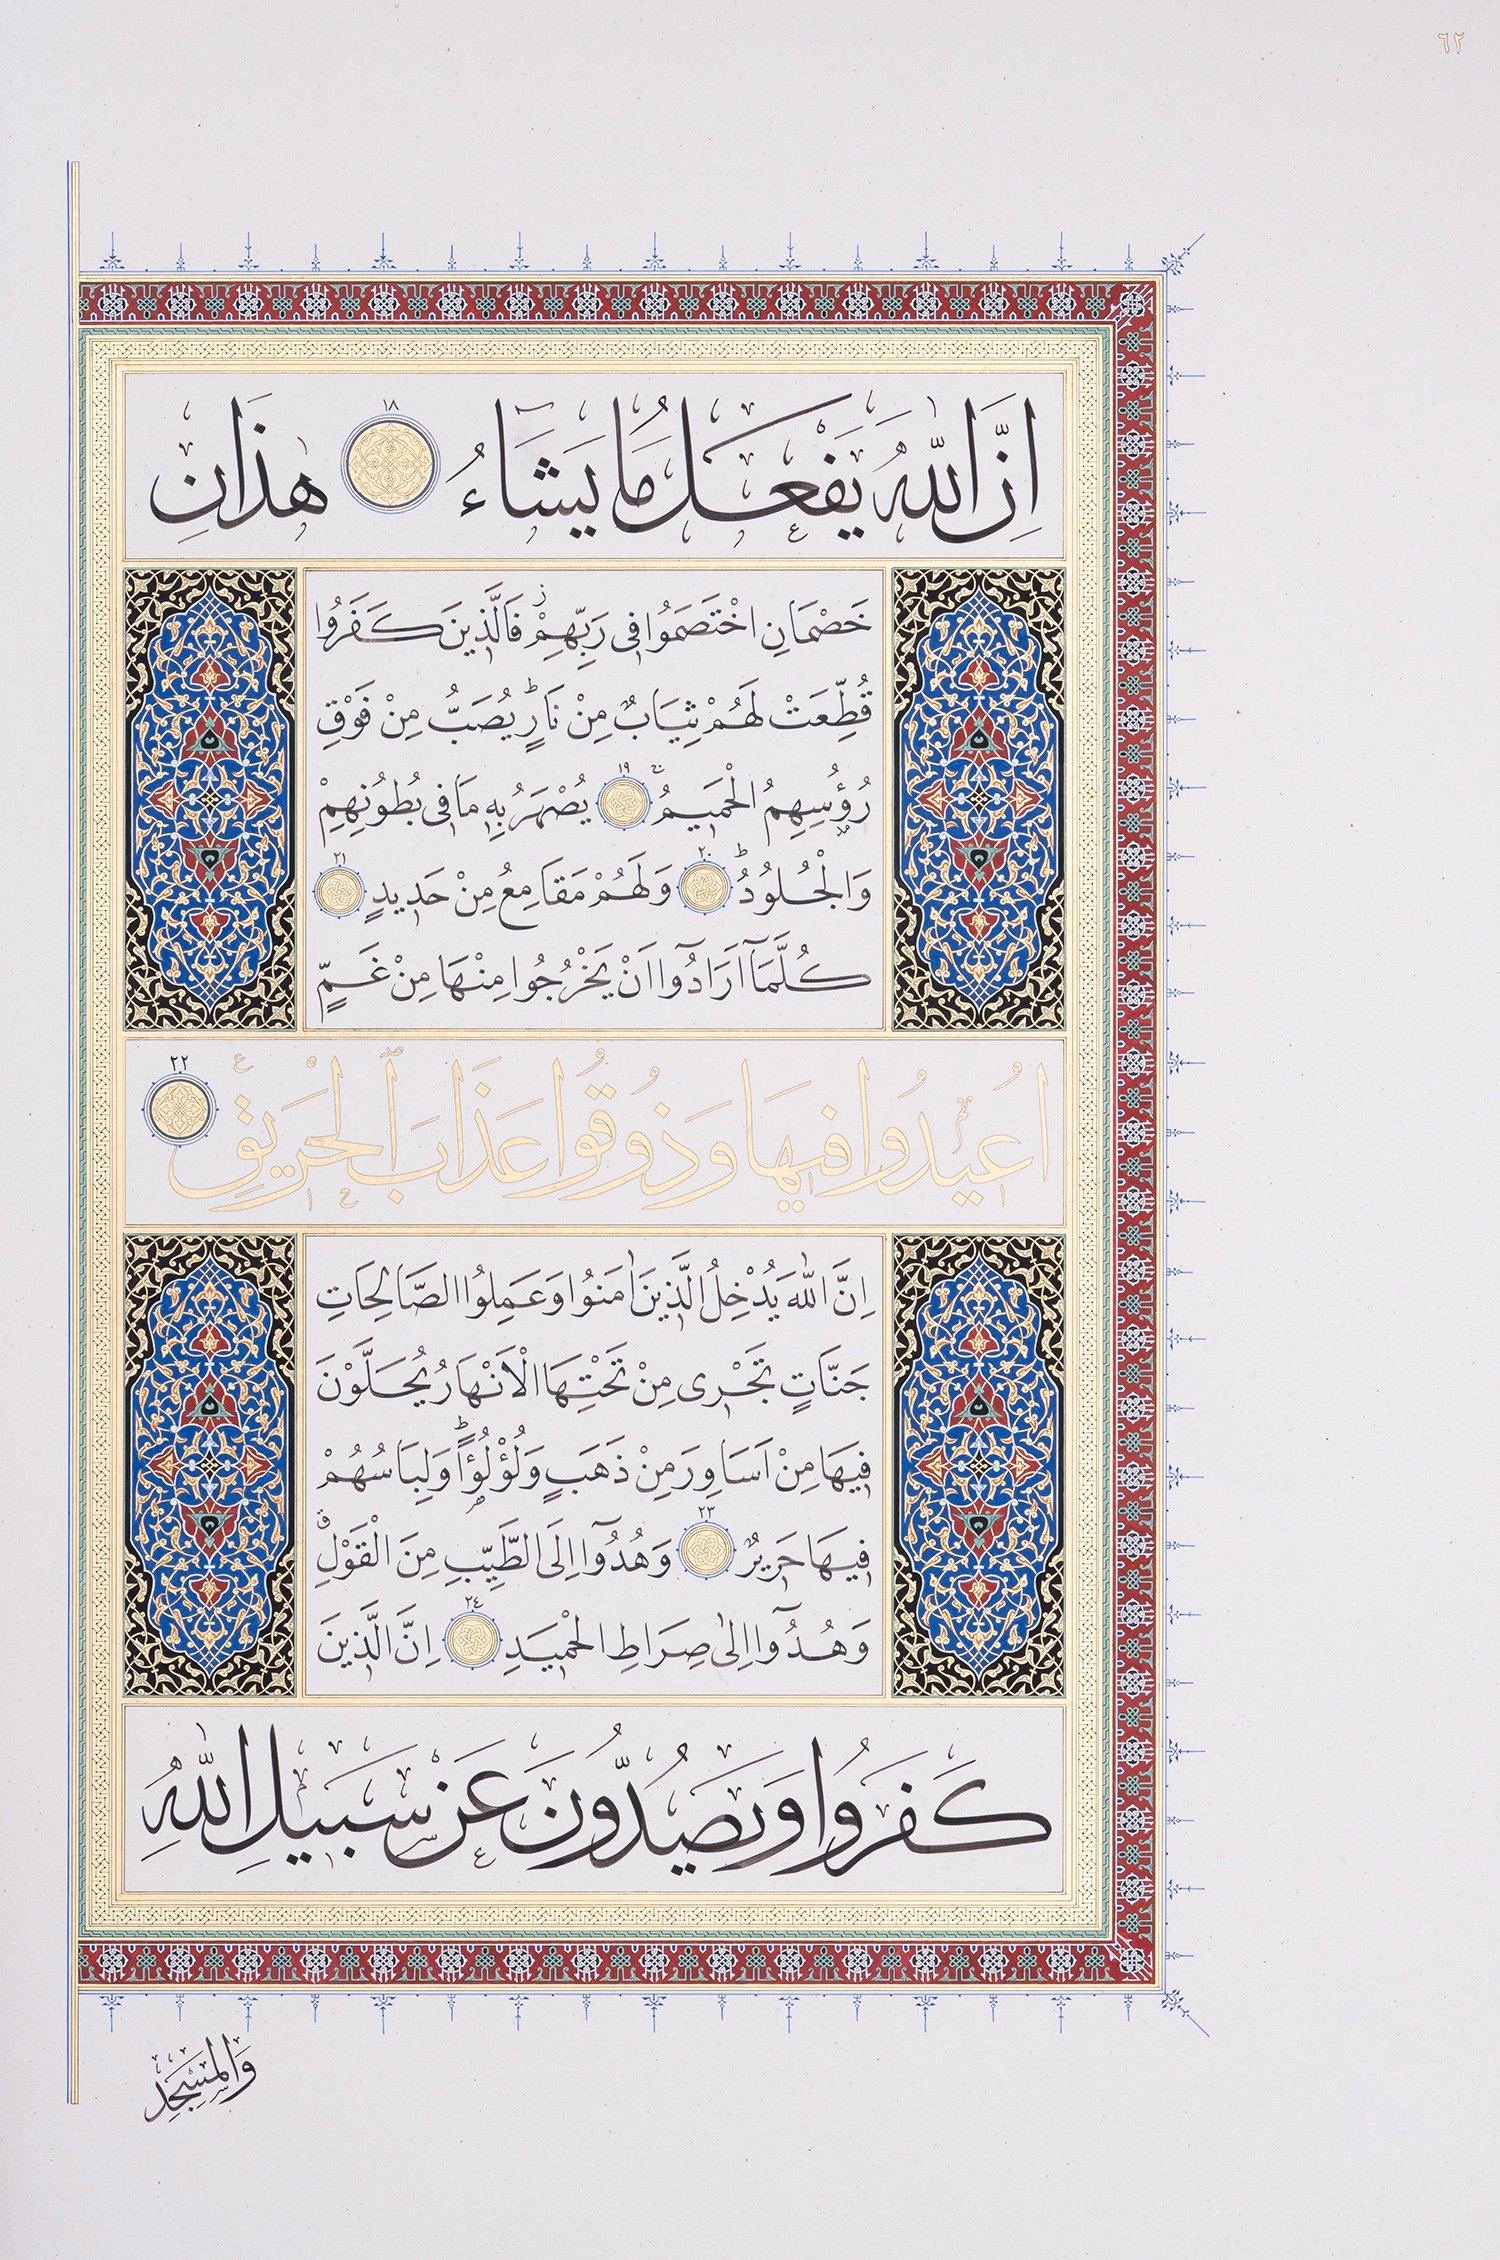 ٦٢
اِنَّ اللّٰهَ يَفْعَلُ مَا يَشَاءُ ١٨ هٰذَانِ
خَصْمَانِ اخْتَصَمُوا فِى رَبِّهِمْ فَالَّذِينَ كَفَرُوا
قُطِّعَتْ لَهُمْ ثِيَابٌ مِنْ نَارٍ يُصَبُّ مِنْ فَوْقِ
رُؤُسِهِمُ الْحَمِيمُ ١٩ يُصْهَرُ بِهِ مَا فِى بُطُونِهِمْ
وَالْجُلُودُ ٢٠ وَلَهُمْ مَقَامِعُ مِنْ حَدِيدٍ ٢١
كُلَّمَآ اَرَادُوٓا اَنْ يَخْرُجُوا مِنْهَا مِنْ غَمٍّ
اُعِيدُوا فِيهَا وَذُوقُوا عَذَابَ الْحَرِيقِ ٢٢
اِنَّ اللّٰهَ يُدْخِلُ الَّذِينَ اٰمَنُوا وَعَمِلُوا الصَّالِحَاتِ
جَنَّاتٍ تَجْرِى مِنْ تَحْتِهَا الْاَنْهَارُ يُحَلَّوْنَ
فِيهَا مِنْ اَسَاوِرَ مِنْ ذَهَبٍ وَلُؤْلُؤًا وَلِبَاسُهُمْ
فِيهَا حَرِيرٌ ٢٣ وَهُدُوٓا اِلَى الطَّيِّبِ مِنَ الْقَوْلِ
وَهُدُوٓا اِلٰى صِرَاطِ الْحَمِيدِ ٢٤ اِنَّ الَّذِينَ
كَفَرُوا وَيَصُدُّونَ عَنْ سَبِيلِ اللّٰهِ
وَالْمَسْجِدِ